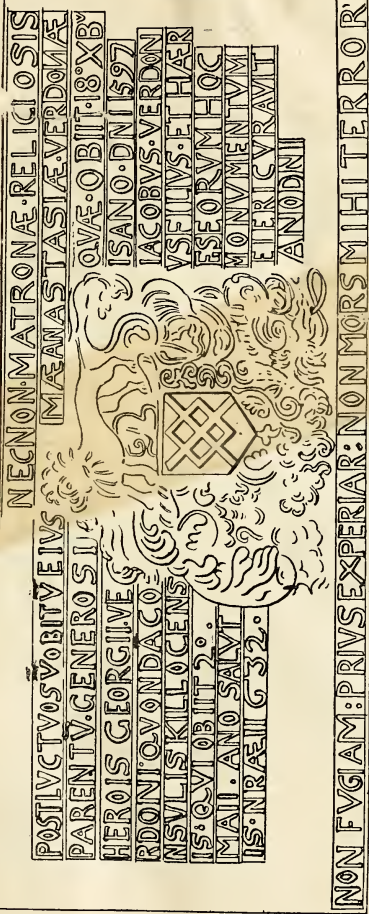 POSTLVCTVOSVOBITVEIVS
PARENTV·GENEROSI
HEROIS GEORGII VE
RDONI·QVONDACO
NSVLIS KILLOCENS
IS·QVI OBIIT 2°·
MAII·ANO SALVT
IS·NRÆ
NECNON·MATRONÆ·RELIGIOSIS
MÆ ANASTASIÆ·VERDONÆ
QVÆ·OBIIT·18°XBV
ISANO·DNI 1597
IACOBVS·VERDON
VSFILIVS·ET HÆR
ESEORVMHOC
MONVMENTVM
FIERICVRAVIT
ANODNII
NON FVGIAM: PRIVSEXPERIAR: NONMORS MIHI TERROR